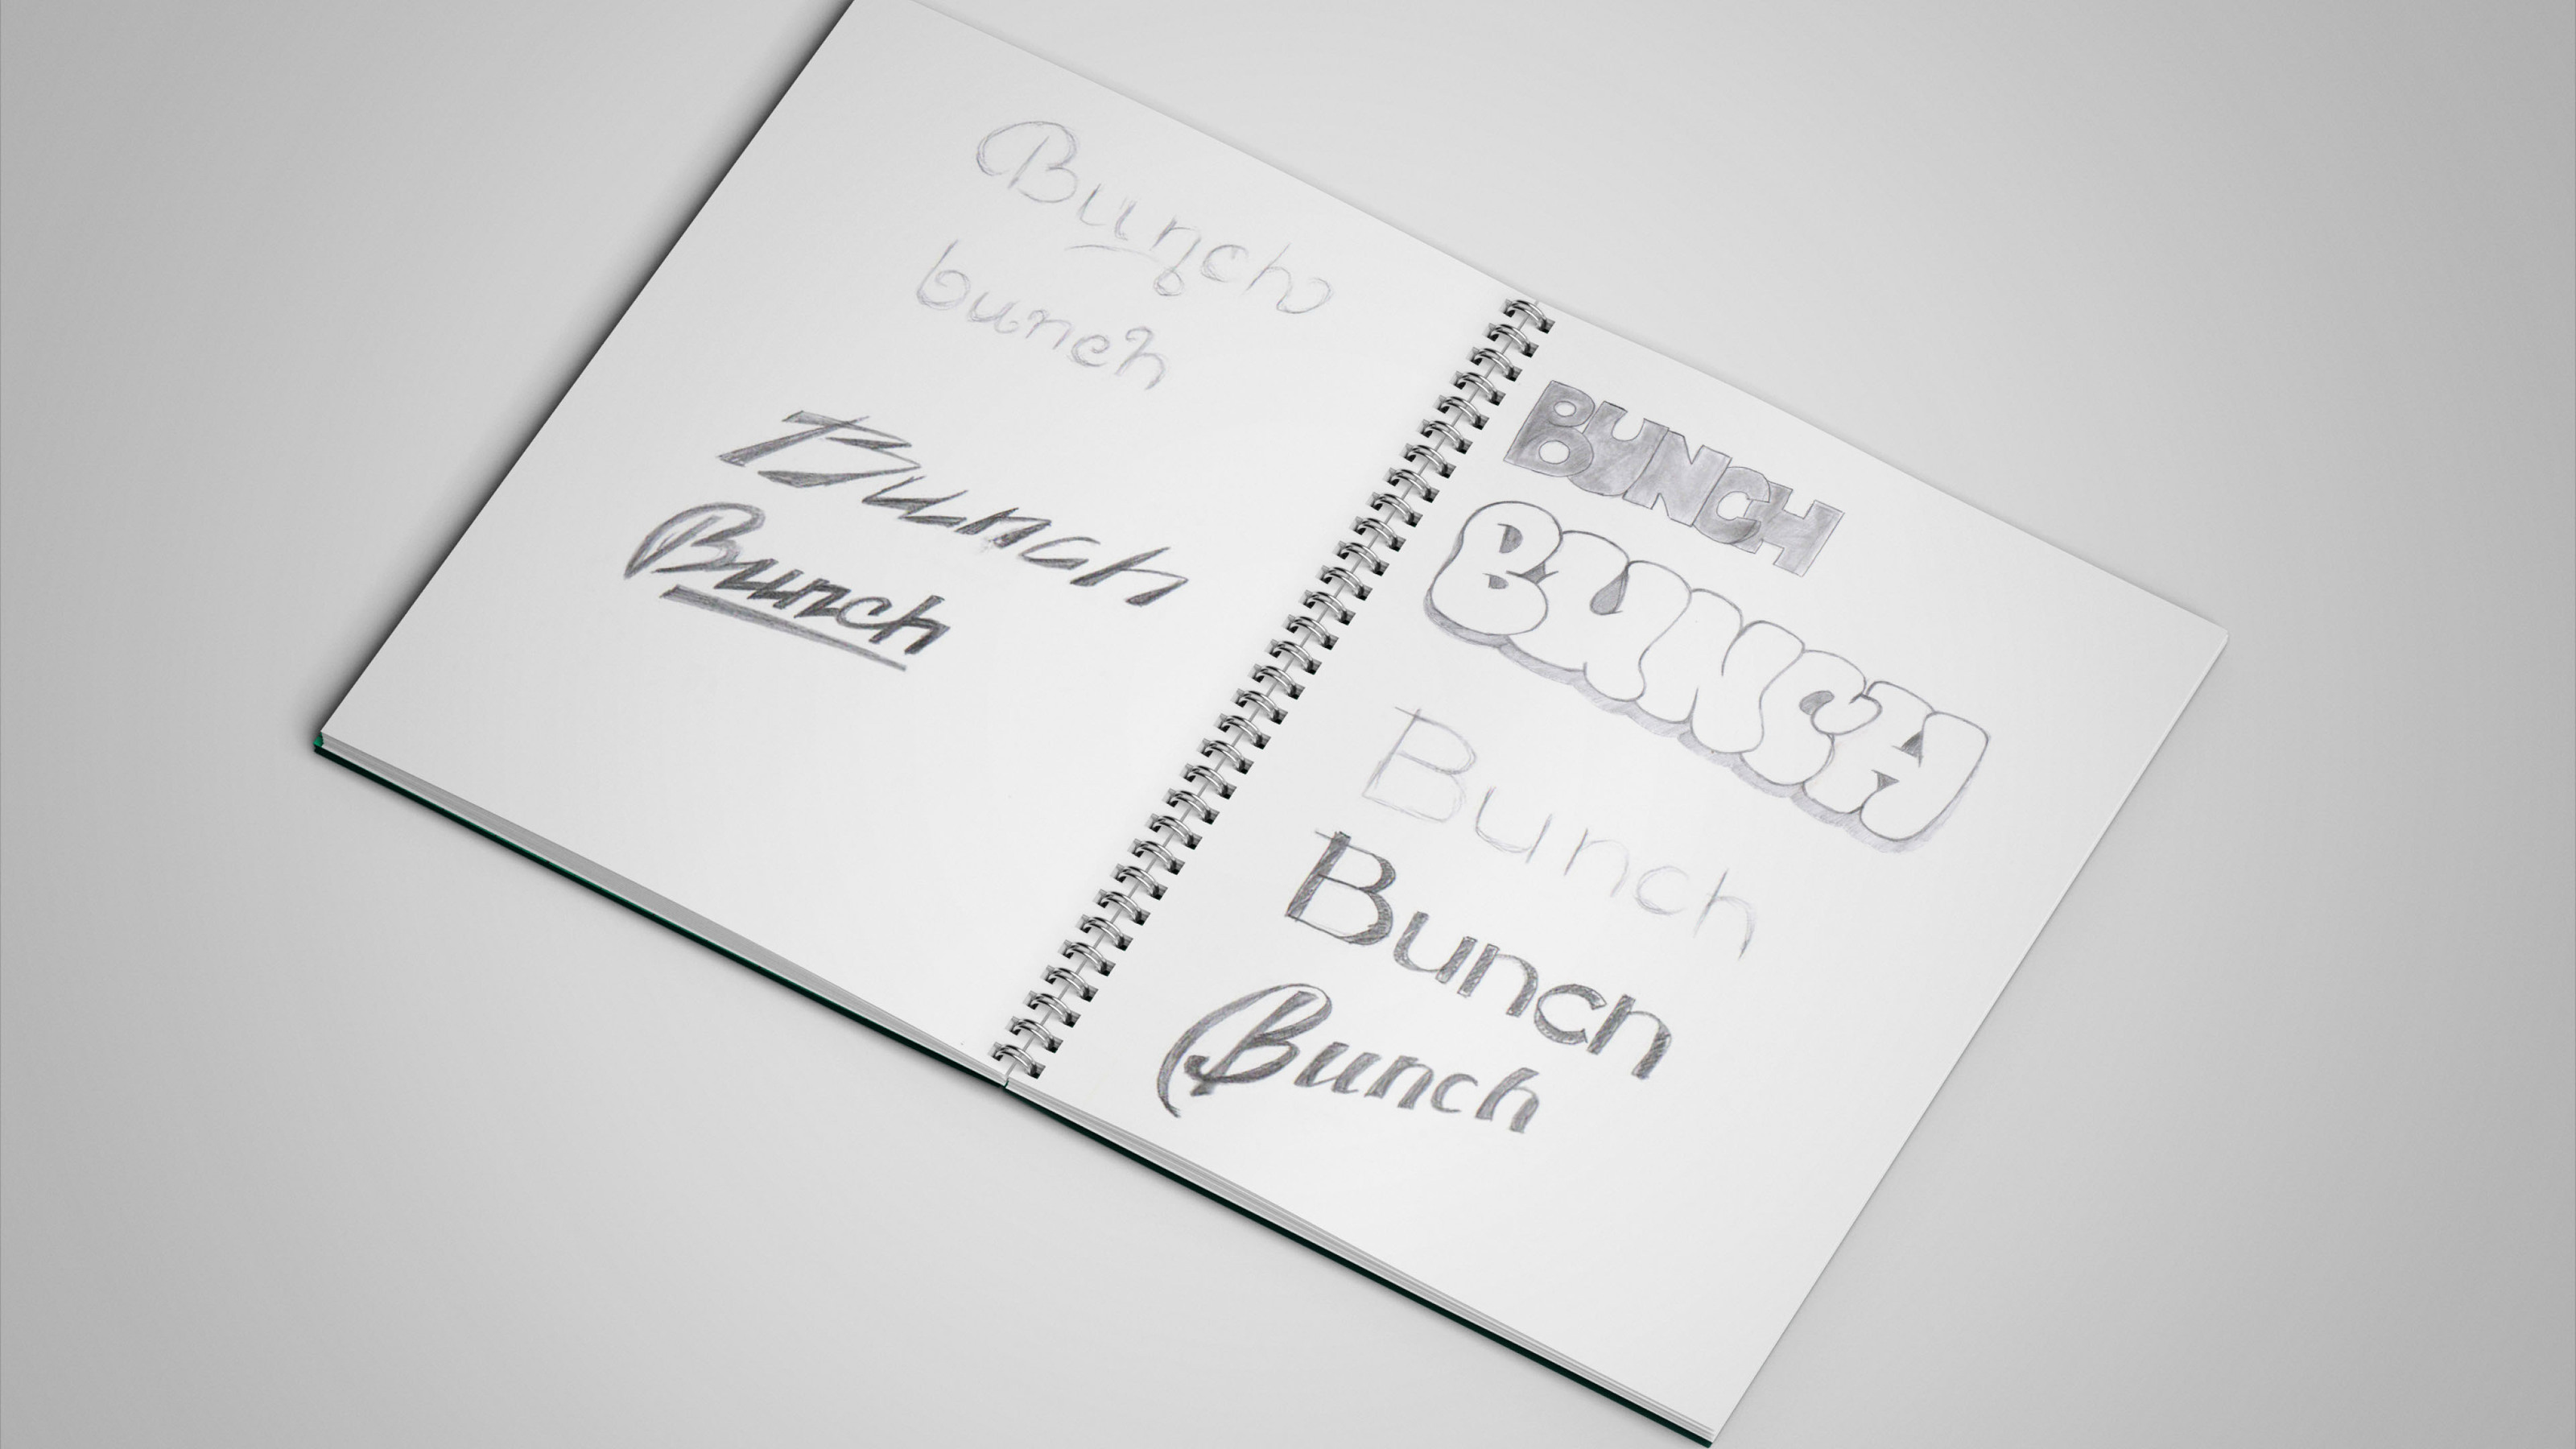 Bunch
bunch
Bunch
Bunch
BUNCH
BUNCH
Bunch
Bunch
Bunch